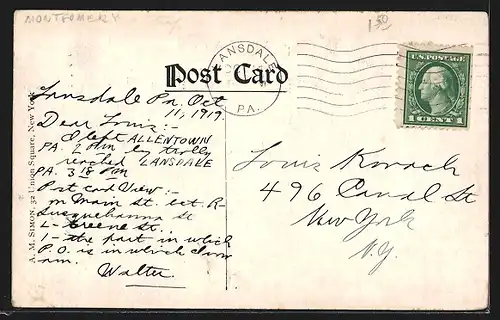 MONTGOMERY
1 50
Post Card
LANSDALE
PA.
U.S. POSTAGE
1 CENT 1
A. M. SIMON, 32 Union Square, New York
Lansdale Pa. Oct
11, 1919.
Dear Louis:-
I left ALLENTOWN
PA. 2 PM by trolly
reached LANSDALE
PA. 3 18 PM
Post card View:-
m Main St. bet R-
Susquehanna St
L- Greene St.
1- the part in which
P.O. is in which I now
am.
Walter
Louis Kovach
496 Canal St
New York
N.Y.